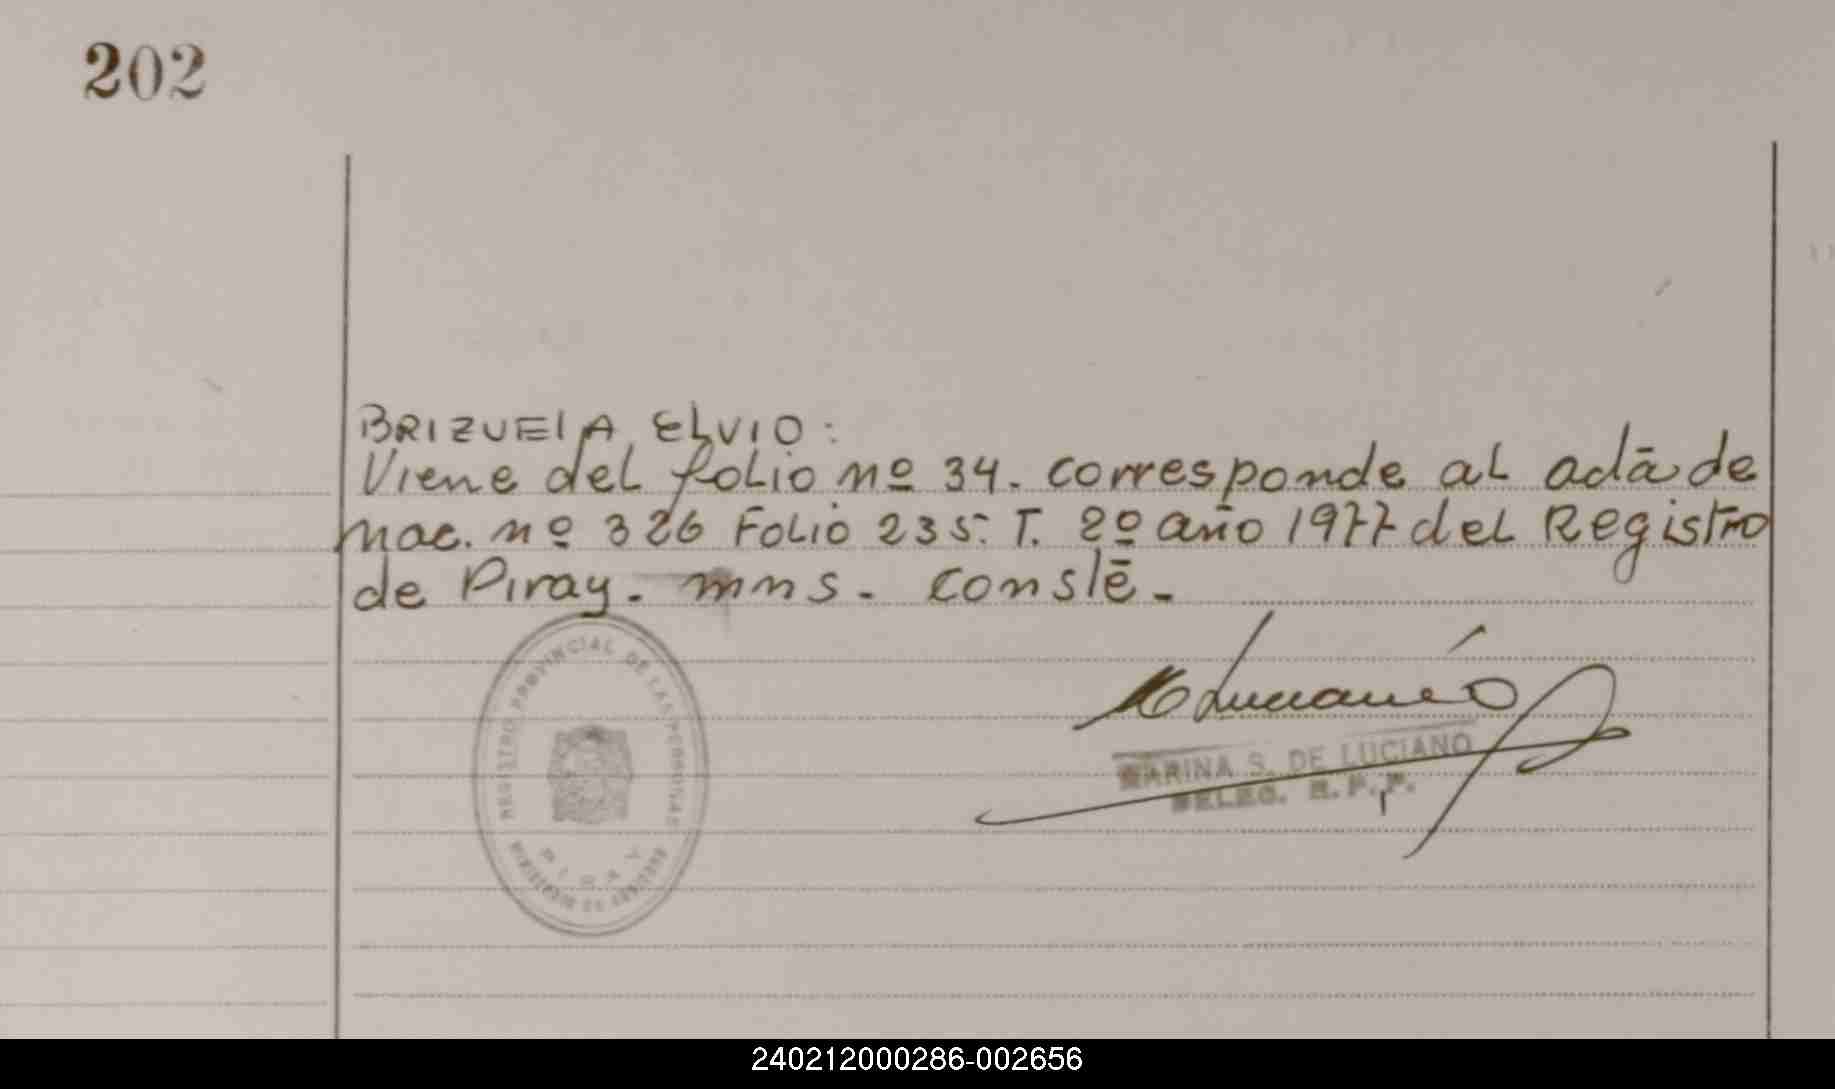 202
BRIZUELA ELVIO:
Viene del folio nº 34. corresponde al actā de
nac. nº 326 Folio 235. T. 2º año 1977 del Registro
de Piray. mns. Conslē.
REGISTRO PROVINCIAL DE LAS PERSONAS
PIRAY
Luciano
MARINA S. DE LUCIANO
DELEG. R. P. P.
240212000286-002656